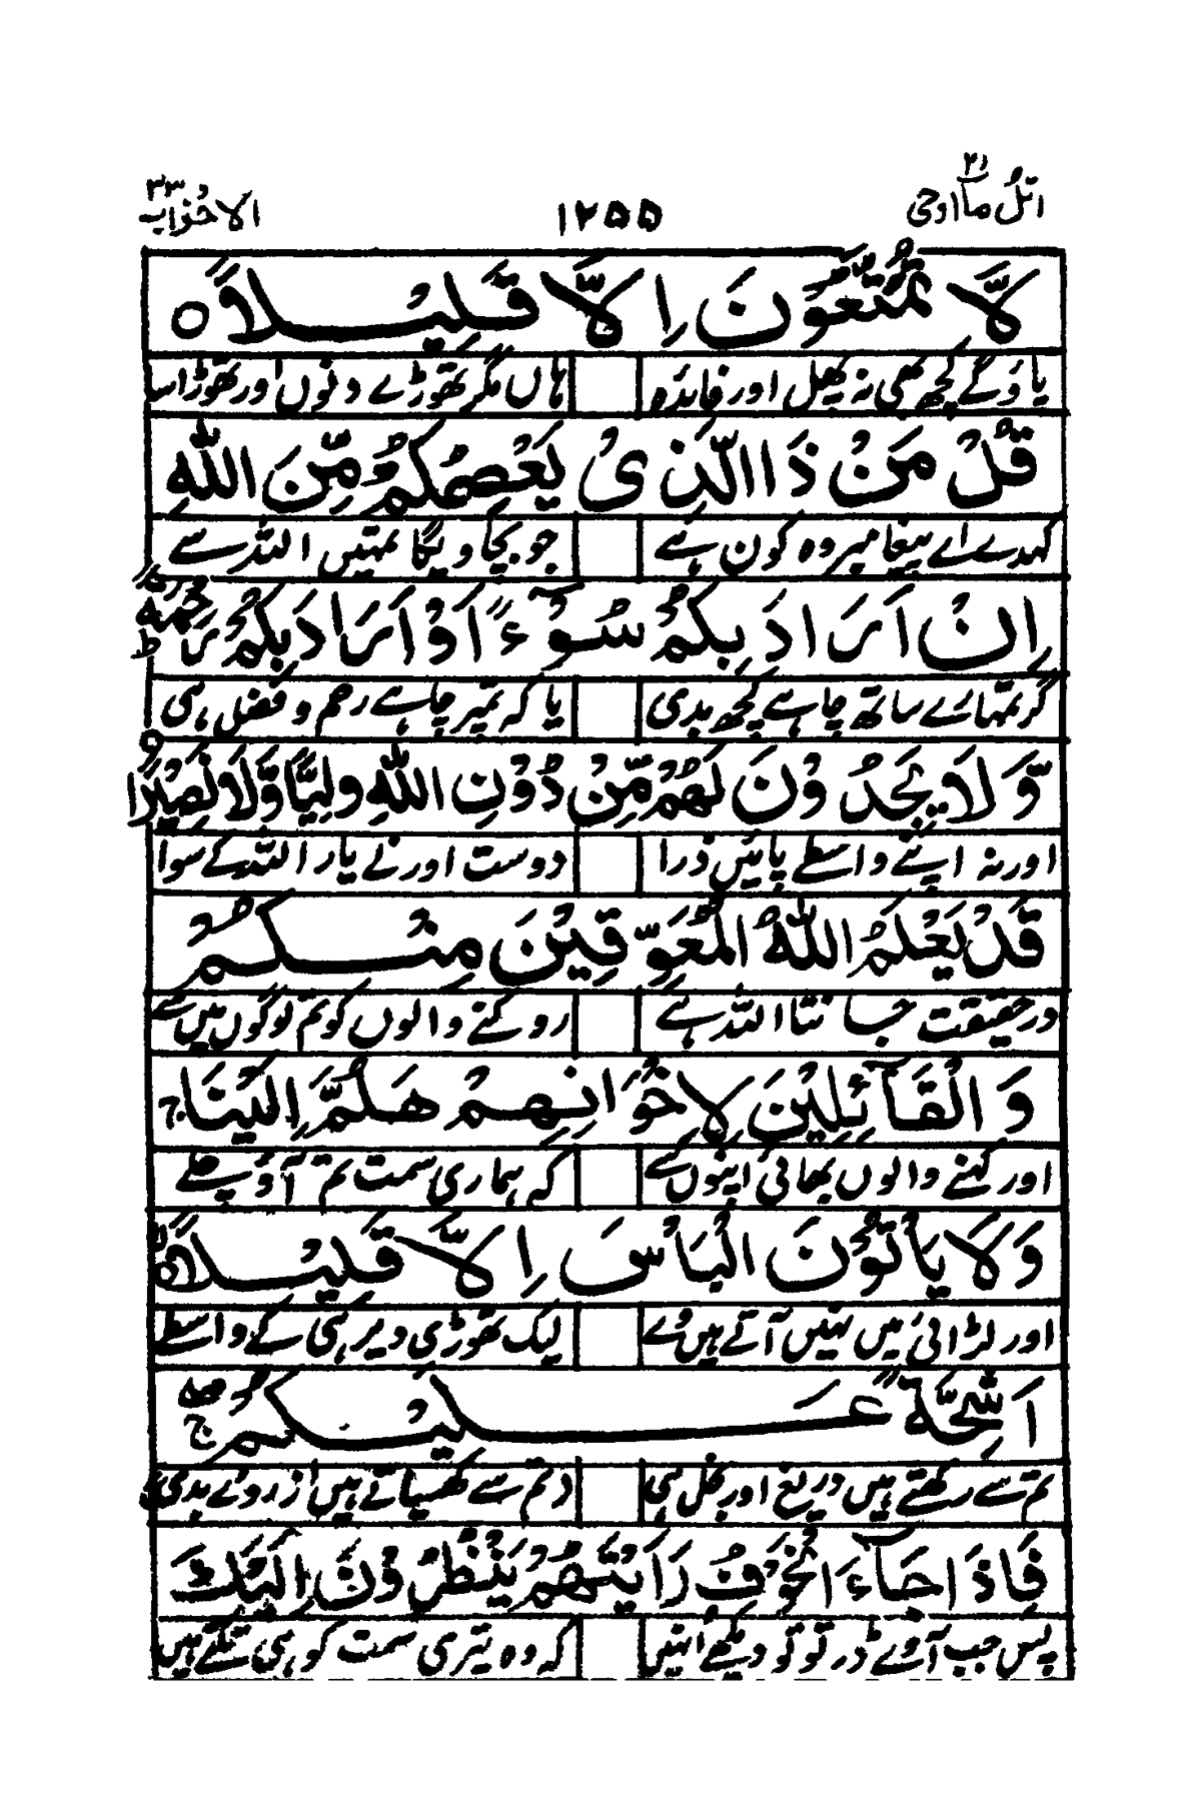 اتل ما اوحی ۲۱ ۱۲۵۵ الاحزاب ۳۳
لَّا تُمَتَّعُوْنَ اِلَّا قَلِيْلًا ○
پاؤ گے کچھ بھی نہ پھل اور فائدہ ہاں مگر تھوڑے دنوں اور تھوڑا سا
قُلْ مَنْ ذَا الَّذِیْ يَعْصِمُكُمْ مِّنَ اللّٰهِ
کہدے اے پیغامبر وہ کون ہے جو بچا ویگا تمہیں اللہ سے
اِنْ اَرَادَ بِكُمْ سُوْٓءًا اَوْ اَرَادَ بِكُمْ رَحْمَةً ط
گر تمہارے ساتھ چاہے کچھ بدی یا کہ تمپر چاہے رحم و فضل ہی
وَّلَا يَجِدُوْنَ لَهُمْ مِّنْ دُوْنِ اللّٰهِ وَلِيًّا وَّلَا نَصِيْرًا ○
اور نہ اپنے واسطے پائیں ذرا دوست اور نے یار اللہ کے سوا
قَدْ يَعْلَمُ اللّٰهُ الْمُعَوِّقِيْنَ مِنْكُمْ
درحقیقت جانتا اللہ ہے روکنے والوں کو تم لوگوں میں سے
وَالْقَآئِلِيْنَ لِاِخْوَانِهِمْ هَلُمَّ اِلَيْنَا ج
اور کہنے والوں بھائی اپنوں کے کہ ہماری سمت تم آؤ چلے
وَلَا يَاْتُوْنَ الْبَاْسَ اِلَّا قَلِيْلًا
اور لڑائی میں نہیں آتے ہیں وے لیک تھوڑی دیر ہی کے واسطے
اَشِحَّةً عَلَيْكُمْ صلے ج
تم سے رکھتے ہیں دریغ اور بخل ہی تم سے کھسیاتے ہیں از روئے بدی
فَاِذَا جَآءَ الْخَوْفُ رَاَيْتَهُمْ يَنْظُرُوْنَ اِلَيْكَ
پس جب آوے ڈر تو تو دیکھے انہیں کہ وہ تیری سمت کو ہی تکتے ہیں